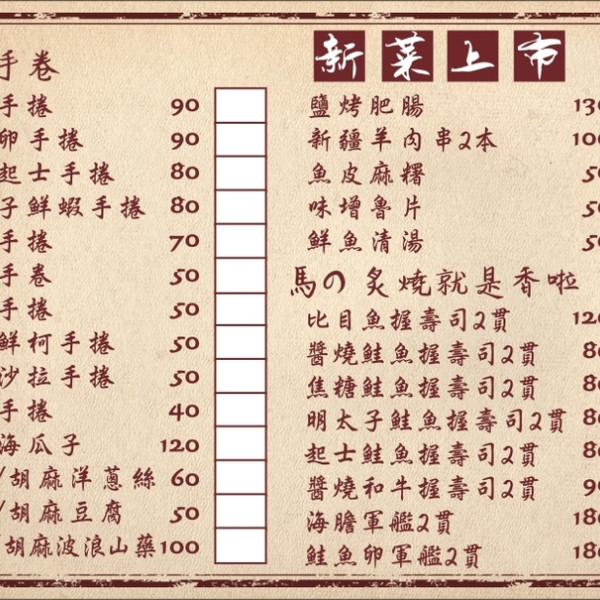 手卷
手捲 90
卵手捲 90
起士手捲 80
子鮮蝦手捲 80
手捲 70
手卷 50
手捲 50
鮮柯手捲 50
沙拉手捲 50
手捲 40
海瓜子 120
/胡麻洋蔥絲 60
/胡麻豆腐 50
/胡麻波浪山藥 100
新菜上市
鹽烤肥腸 130
新疆羊肉串2本 100
魚皮麻糬 50
味增魯片 50
鮮魚清湯 50
馬の炙燒就是香啦
比目魚握壽司2貫 120
醬燒鮭魚握壽司2貫 80
焦糖鮭魚握壽司2貫 80
明太子鮭魚握壽司2貫 80
起士鮭魚握壽司2貫 80
醬燒和牛握壽司2貫 90
海膽軍艦2貫 180
鮭魚卵軍艦2貫 180